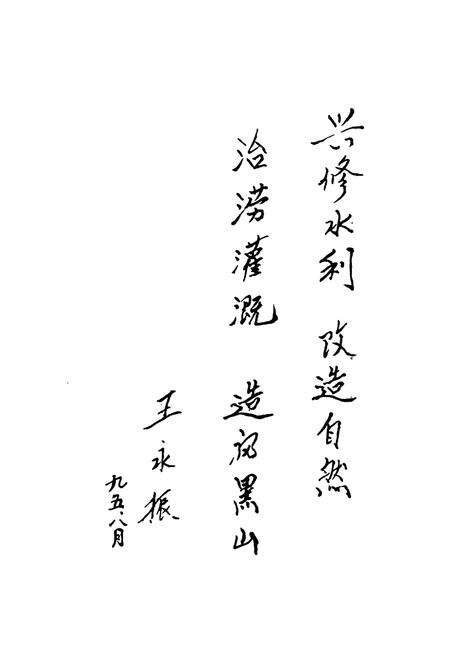 兴修水利 改造自然
治涝灌溉 造福黑山
王永振
九五.八月